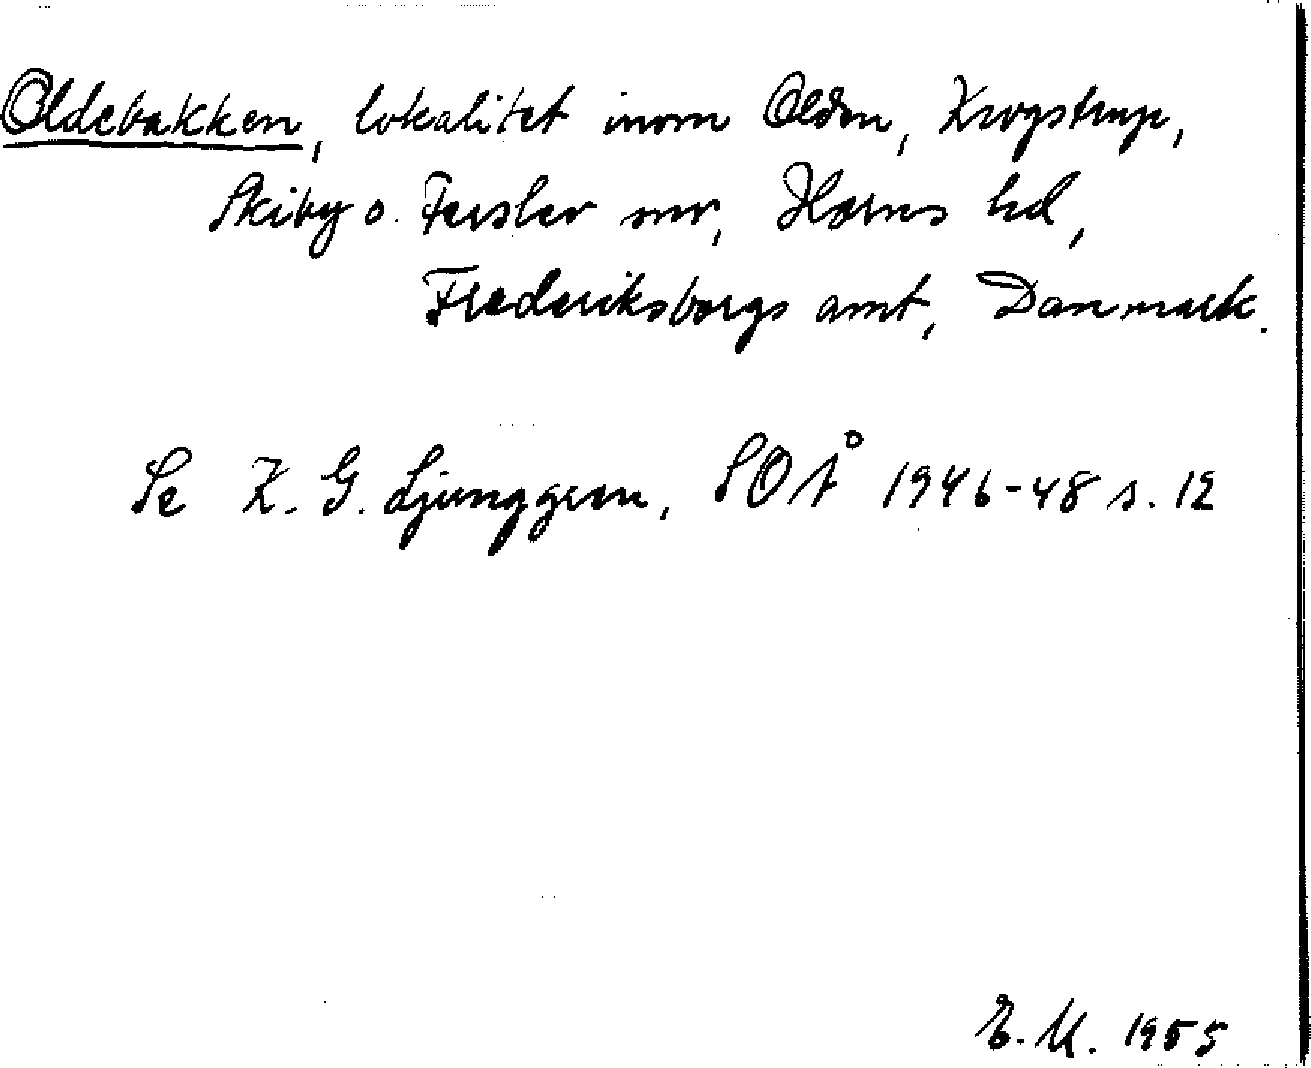 Oldebakken, lokalitet inom Olden, Krogstrup,
Skiby o. Ferslev snr, Horns hd,
Frederiksborgs amt, Danmark.
Se K. G. Ljunggren, SOÅ 1946-48 s. 12
E. U. 1955